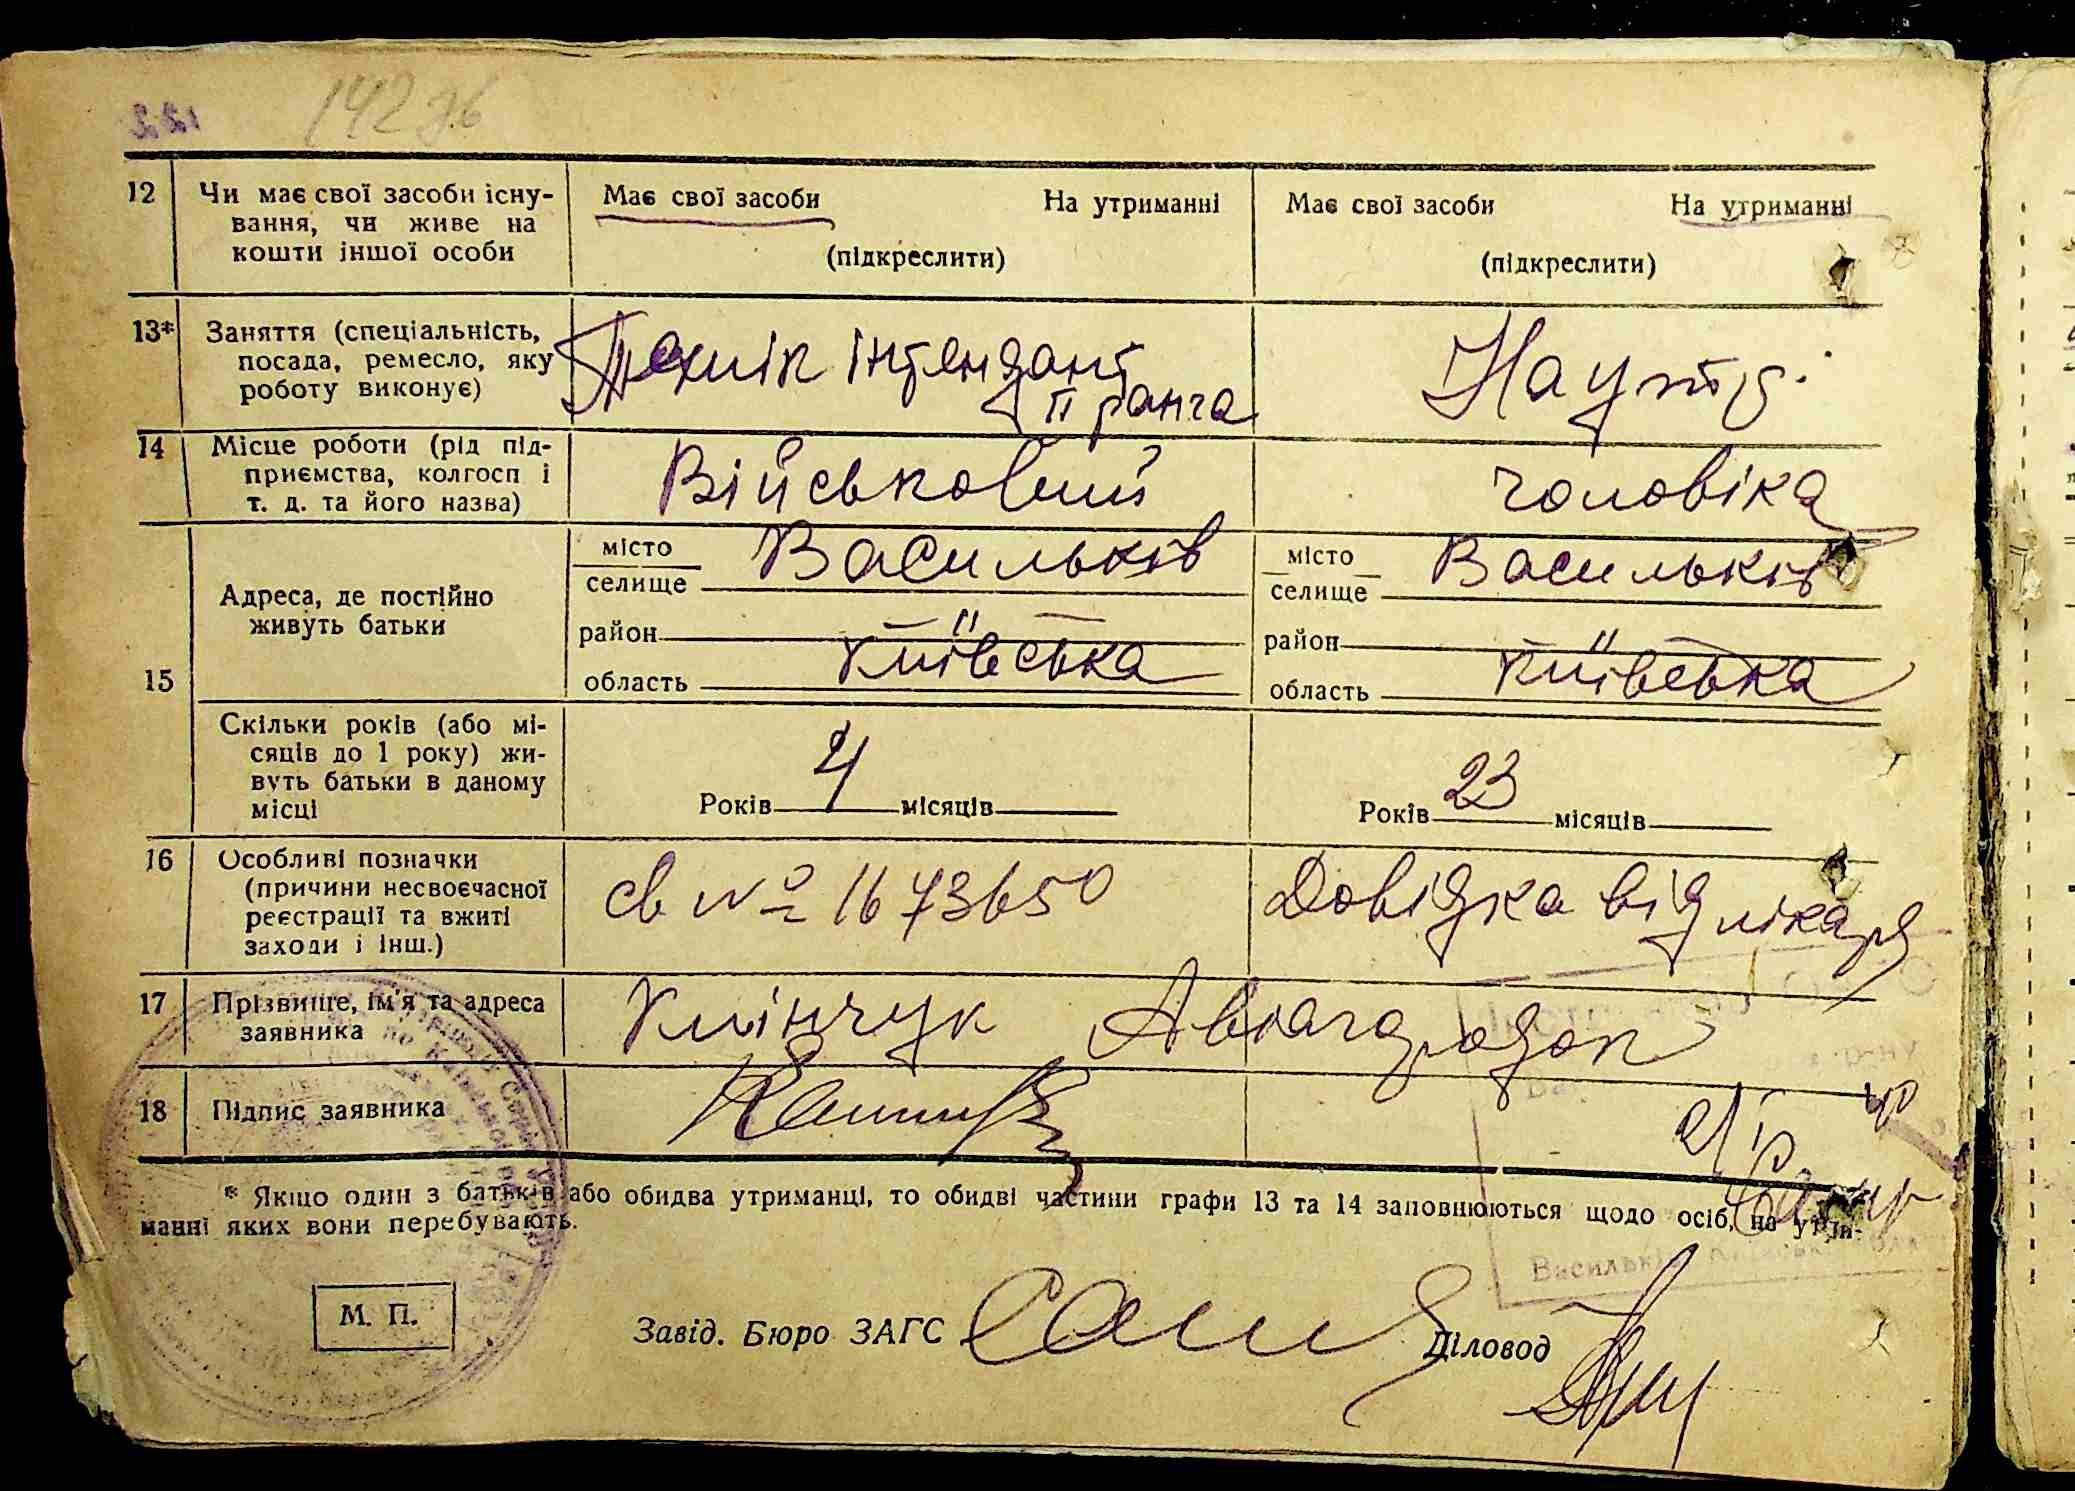 142 зв
12 Чи має свої засоби існу- Має свої засоби На утриманні Має свої засоби На утриманні
вання, чи живе на
кошти іншої особи (підкреслити) (підкреслити)
13* Заняття (спеціальність,
посада, ремесло, яку Технік інтендант На утр.
роботу виконує) ІІ ранга
14 Місце роботи (рід під-
приємства, колгосп і Військовий чоловіка
т. д. та його назва)
місто Васильків місто Васильків
селище селище
Адреса, де постійно
живуть батьки район — " — район — " —
15 область Київська область Київська
Скільки років (або мі-
сяців до 1 року) жи-
вуть батьки в даному
місці Років 4 місяців Років 23 місяців
16 Особливі позначки
(причини несвоєчасної св № 1673650 Довідка від лікаря
реєстрації та вжиті
заходи і інш.)
17 Прізвище, ім'я та адреса Клінчук Авіагородок
заявника
18 Підпис заявника
* Якщо один з батьків або обидва утриманці, то обидві частини графи 13 та 14 заповнюються щодо осіб, на утри-
манні яких вони перебувають.
М. П. Завід. Бюро ЗАГС Діловод